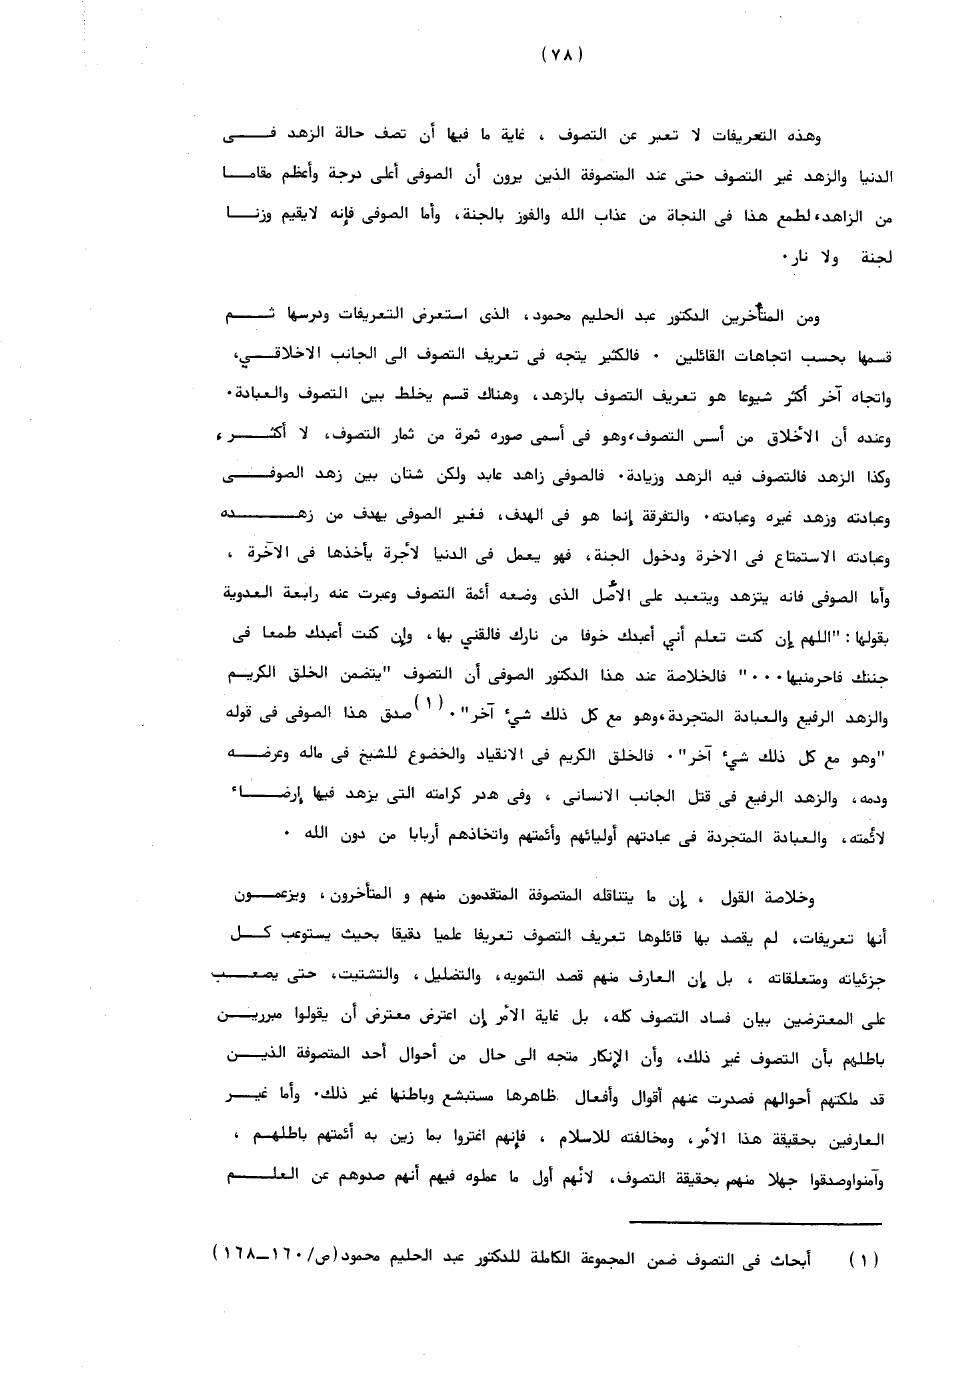 (٧٨)
وهذه التعريفات لا تعبر عن التصوف ، غاية ما فيها أن تصف حالة الزهد فـــى
الدنيا والزهد غير التصوف حتى عند المتصوفة الذين يرون أن الصوفى أعلى درجة وأعظم مقامــا
من الزاهد، لطمع هذا فى النجاة من عذاب الله والفوز بالجنة، وأما الصوفى فإنه لايقيم وزنــا
لجنة ولا نار٠
ومن المتأخرين الدكتور عبد الحليم محمود، الذى استعرض التعريفات ودرسها ثـــم
قسمها بحسب اتجاهات القائلين ٠ فالكثير يتجه فى تعريف التصوف الى الجانب الاخلاقــي،
واتجاه آخر أكثر شيوعا هو تعريف التصوف بالزهد، وهناك قسم يخلط بين التصوف والعبادة٠
وعنده أن الأخلاق من أسس التصوف، وهو فى أسمى صوره ثمرة من ثمار التصوف، لا أكثـــر،
وكذا الزهد فالتصوف فيه الزهد وزيادة٠ فالصوفى زاهد عابد ولكن شتان بين زهد الصوفـــى
وعبادته وزهد غيره وعبادته٠ والتفرقة إنما هو فى الهدف، فغير الصوفى يهدف من زهـــده
وعبادته الاستمتاع فى الاخرة ودخول الجنة، فهو يعمل فى الدنيا لأجرة يأخذها فى الآخرة ،
وأما الصوفى فانه يتزهد ويتعبد على الأصل الذى وضعه أئمة التصوف وعبرت عنه رابعة العدوية
بقولها : "اللهم إن كنت تعلم أني أعبدك خوفا من نارك فالقني بها، وإن كنت أعبدك طمعا فى
جنتك فاحرمنيها٠٠٠" فالخلاصة عند هذا الدكتور الصوفى أن التصوف "يتضمن الخلق الكريــم
والزهد الرفيع والعبادة المتجردة، وهو مع كل ذلك شيء آخر"٠(١) صدق هذا الصوفى فى قوله
"وهو مع كل ذلك شيء آخر"٠ فالخلق الكريم فى الانقياد والخضوع للشيخ فى ماله وعرضــه
ودمه، والزهد الرفيع فى قتل الجانب الانسانى ، وفى هدر كرامته التى يزهد فيها إرضــاء
لأئمته، والعبادة المتجردة فى عبادتهم أوليائهم وأئمتهم واتخاذهم أربابا من دون الله ٠
وخلاصة القول ، إن ما يتناقله المتصوفة المتقدمون منهم و المتأخرون، ويزعمــون
أنها تعريفات، لم يقصد بها قائلوها تعريف التصوف تعريفا علميا دقيقا بحيث يستوعب كــل
جزئياته ومتعلقاته ، بل إن العارف منهم قصد التمويه، والتضليل، والتشتيت، حتى يصعــب
على المعترضين بيان فساد التصوف كله، بل غاية الأمر إن اعترض معترض أن يقولوا مبرريــن
باطلهم بأن التصوف غير ذلك، وأن الإنكار متجه الى حال من أحوال أحد المتصوفة الذيــن
قد ملكتهم أحوالهم فصدرت عنهم أقوال وأفعال ظاهرها مستبشع وباطنها غير ذلك٠ وأما غيــر
العارفين بحقيقة هذا الأمر، ومخالفته للاسلام ، فإنهم اغتروا بما زين به أئمتهم باطلهــم ،
وآمنواوصدقوا جهلا منهم بحقيقة التصوف، لأنهم أول ما عملوه فيهم أنهم صدوهم عن العلــم
(١) أبحاث فى التصوف ضمن المجموعة الكاملة للدكتور عبد الحليم محمود(ص/١٦٠ــ١٦٨)